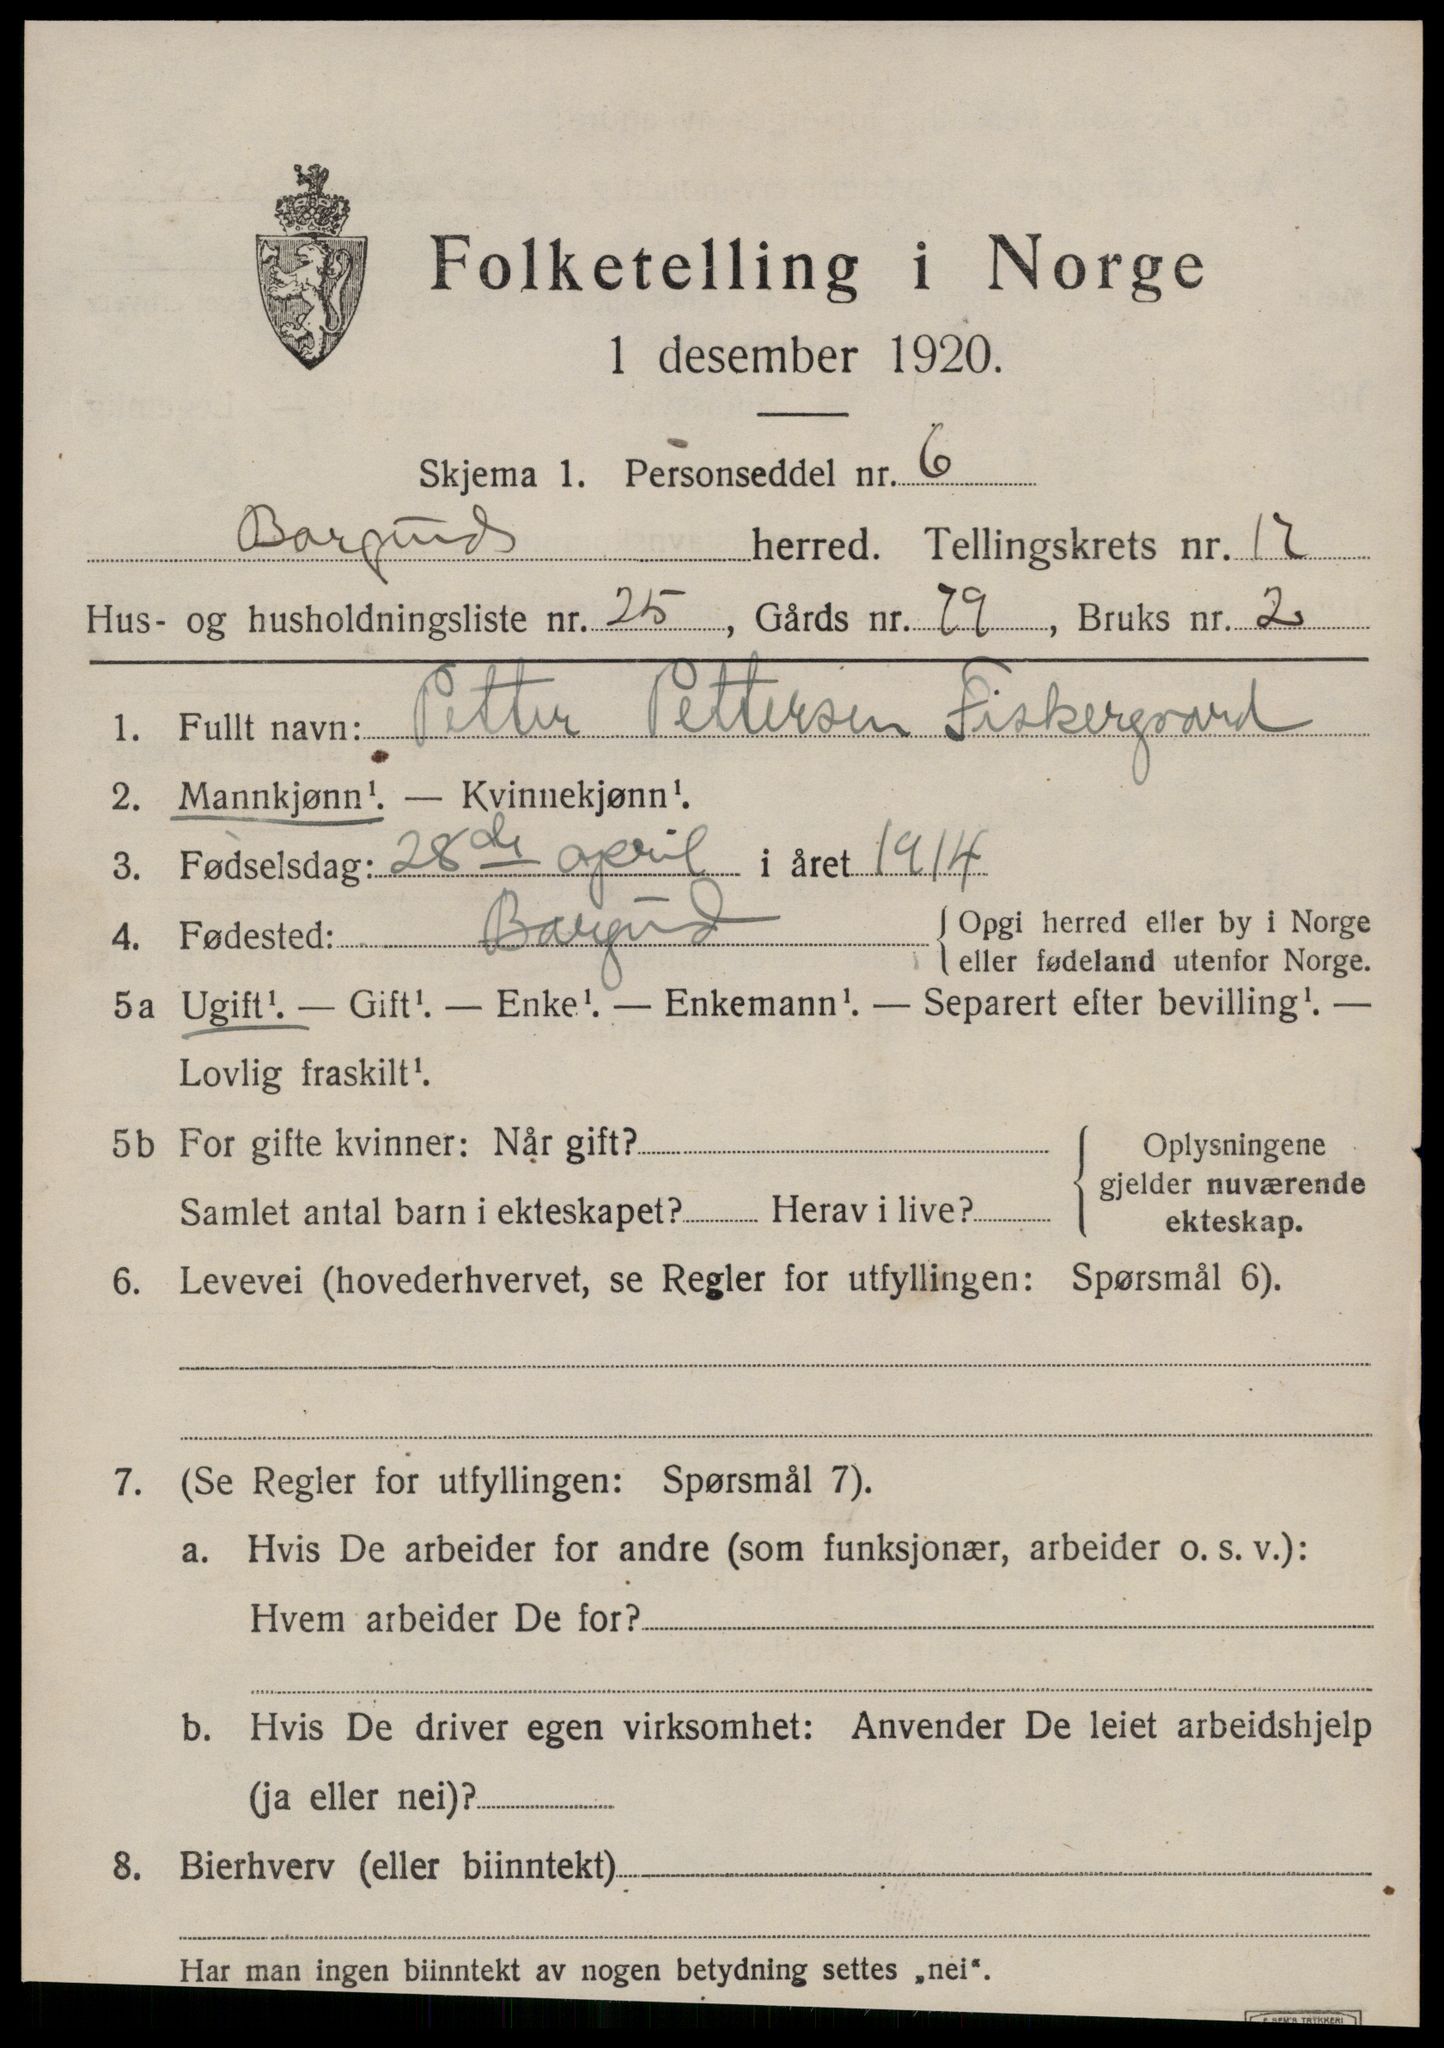 Folketelling i Norge
1 desember 1920.
Skjema 1. Personseddel nr. 6
Borgunds herred. Tellingskrets nr. 12
Hus- og husholdningsliste nr. 25, Gårds nr. 79, Bruks nr. 2
1. Fullt navn: Petter Pettersen Fiskergaard
2. Mannkjønn¹. — Kvinnekjønn¹.
3. Fødselsdag: 28de april i året 1914
4. Fødested: Borgund { Opgi herred eller by i Norge
eller fødeland utenfor Norge.
5a Ugift¹. — Gift¹. — Enke¹. — Enkemann¹. — Separert efter bevilling¹. —
Lovlig fraskilt¹.
5b For gifte kvinner: Når gift? { Oplysningene
gjelder nuværende
Samlet antal barn i ekteskapet? Herav i live? ekteskap.
6. Levevei (hovederhvervet, se Regler for utfyllingen: Spørsmål 6).
7. (Se Regler for utfyllingen: Spørsmål 7).
a. Hvis De arbeider for andre (som funksjonær, arbeider o. s. v.):
Hvem arbeider De for?
b. Hvis De driver egen virksomhet: Anvender De leiet arbeidshjelp
(ja eller nei)?
8. Bierhverv (eller biinntekt)
Har man ingen biinntekt av nogen betydning settes „nei“.